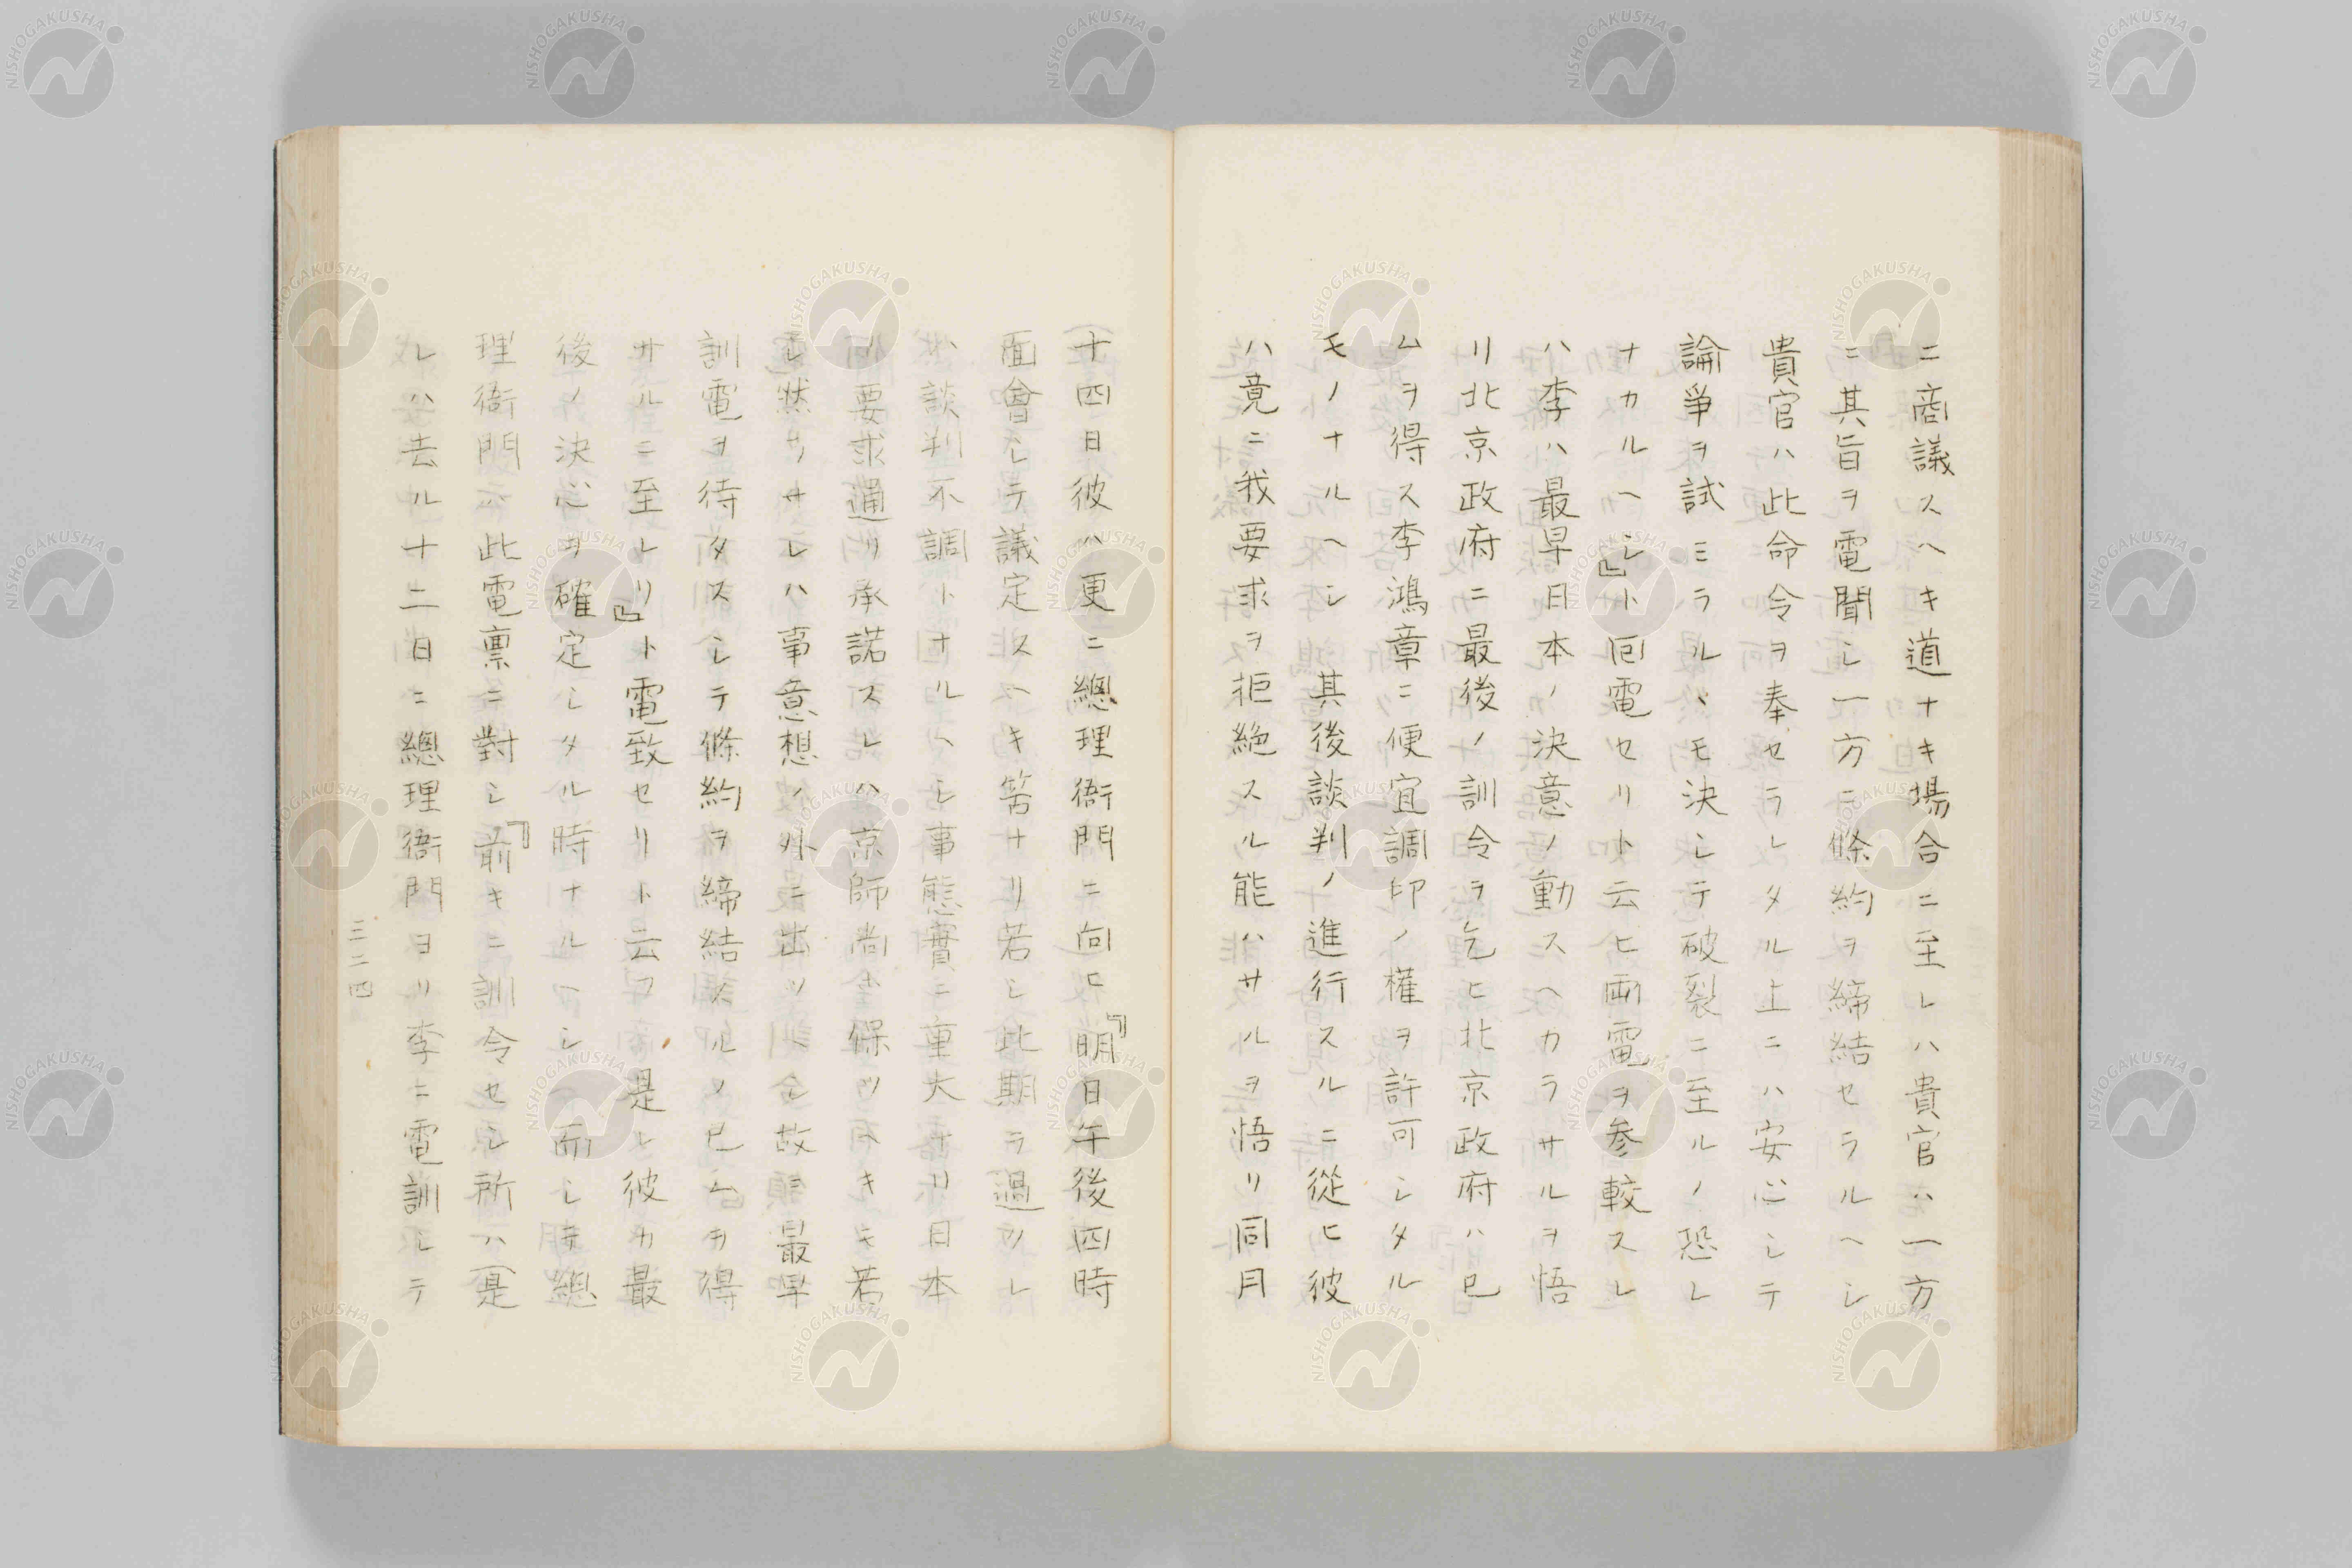 ニ商議スヘキ道ナキ場合ニ至レハ貴官ハ一方
ニ其旨ヲ電聞シ一方ニ條約ヲ締結セラルヘシ
貴官ハ此命令ヲ奉セラレタル上ニハ安心シテ
論爭ヲ試ミラルヽモ決シテ破裂ニ至ルノ恐レ
ナカルヘシ』ト回電セリト云ヒ両電ヲ参較スレ
ハ李ハ最早日本ノ決意ノ動スヘカラサルヲ悟
リ北京政府ニ最後ノ訓令ヲ乞ヒ北京政府ハ已
ムヲ得ス李鴻章ニ便宜調印ノ權ヲ許可シタル
モノナルヘシ 其後談判ノ進行スルニ從ヒ彼
ハ竟ニ我要求ヲ拒絶スル能ハサルヲ悟リ同月
十四日彼ハ更ニ總理衙門ニ向ヒ『明日午後四時
面會シテ議定スヘキ筈ナリ若シ此期ヲ過クレ
ハ談判不調トナルヘシ事態實ニ重大ナリ日本
ノ要求通リ承諾スレハ京師尚ホ保ツヘキモ若
シ然ラサレハ事意想ノ外ニ出ツ故ニ最早
訓電ヲ待タスシテ條約ヲ締結スルノ已ムヲ得
サルニ至レリ』ト電致セリト云フ 是レ彼カ最
後ノ決心ヲ確定シタル時ナルヘシ 而シテ總
理衙門ハ此電稟ニ對シ『前キニ訓令セシ所ハ(是
レハ去ル十二日ニ總理衙門ヨリ李ニ電訓シテ
三二四
NISHOGAKUSHA